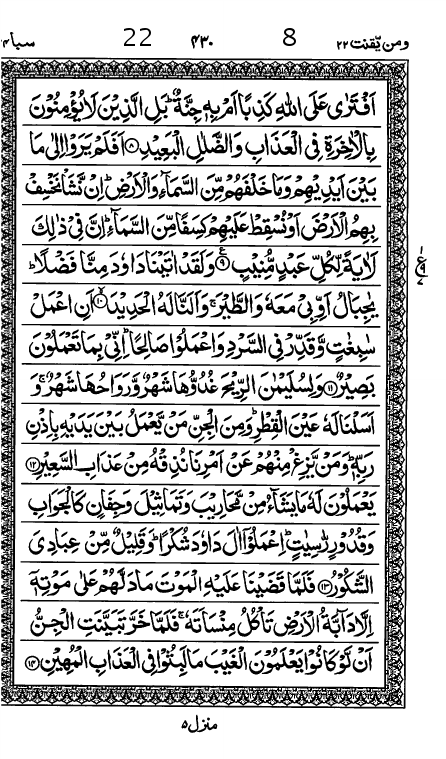 ومن يقنت ٢٢ 8 ٤٣٠ 22 سبا ٣٤
اَفْتَرٰى عَلَى اللّٰهِ كَذِبًا اَمْ بِهٖ جِنَّةٌ ؕ بَلِ الَّذِيْنَ لَا يُؤْمِنُوْنَ
بِالْاٰخِرَةِ فِى الْعَذَابِ وَالضَّلٰلِ الْبَعِيْدِ ﴿٨﴾ اَفَلَمْ يَرَوْا اِلٰى مَا
بَيْنَ اَيْدِيْهِمْ وَمَا خَلْفَهُمْ مِّنَ السَّمَآءِ وَالْاَرْضِ ؕ اِنْ نَّشَاْ نَخْسِفْ
بِهِمُ الْاَرْضَ اَوْ نُسْقِطْ عَلَيْهِمْ كِسَفًا مِّنَ السَّمَآءِ ؕ اِنَّ فِىْ ذٰلِكَ
لَاٰيَةً لِّكُلِّ عَبْدٍ مُّنِيْبٍ ﴿٩﴾ وَلَقَدْ اٰتَيْنَا دَاوٗدَ مِنَّا فَضْلًا ؕ
يٰجِبَالُ اَوِّبِىْ مَعَهٗ وَالطَّيْرَ ۚ وَاَلَنَّا لَهُ الْحَدِيْدَ ﴿١٠﴾ اَنِ اعْمَلْ
سٰبِغٰتٍ وَّقَدِّرْ فِى السَّرْدِ وَاعْمَلُوْا صَالِحًا ؕ اِنِّىْ بِمَا تَعْمَلُوْنَ
بَصِيْرٌ ﴿١١﴾ وَلِسُلَيْمٰنَ الرِّيْحَ غُدُوُّهَا شَهْرٌ وَّرَوَاحُهَا شَهْرٌ ۚ وَ
اَسَلْنَا لَهٗ عَيْنَ الْقِطْرِ ؕ وَمِنَ الْجِنِّ مَنْ يَّعْمَلُ بَيْنَ يَدَيْهِ بِاِذْنِ
رَبِّهٖ ؕ وَمَنْ يَّزِغْ مِنْهُمْ عَنْ اَمْرِنَا نُذِقْهُ مِنْ عَذَابِ السَّعِيْرِ ﴿١٢﴾
يَعْمَلُوْنَ لَهٗ مَا يَشَآءُ مِنْ مَّحَارِيْبَ وَتَمَاثِيْلَ وَجِفَانٍ كَالْجَوَابِ
وَقُدُوْرٍ رّٰسِيٰتٍ ؕ اِعْمَلُوْۤا اٰلَ دَاوٗدَ شُكْرًا ؕ وَقَلِيْلٌ مِّنْ عِبَادِىَ
الشَّكُوْرُ ﴿١٣﴾ فَلَمَّا قَضَيْنَا عَلَيْهِ الْمَوْتَ مَا دَلَّهُمْ عَلٰى مَوْتِهٖۤ
اِلَّا دَآبَّةُ الْاَرْضِ تَاْكُلُ مِنْسَاَتَهٗ ۚ فَلَمَّا خَرَّ تَبَيَّنَتِ الْجِنُّ
اَنْ لَّوْ كَانُوْا يَعْلَمُوْنَ الْغَيْبَ مَا لَبِثُوْا فِى الْعَذَابِ الْمُهِيْنِ ﴿١٤﴾
منزل ٥